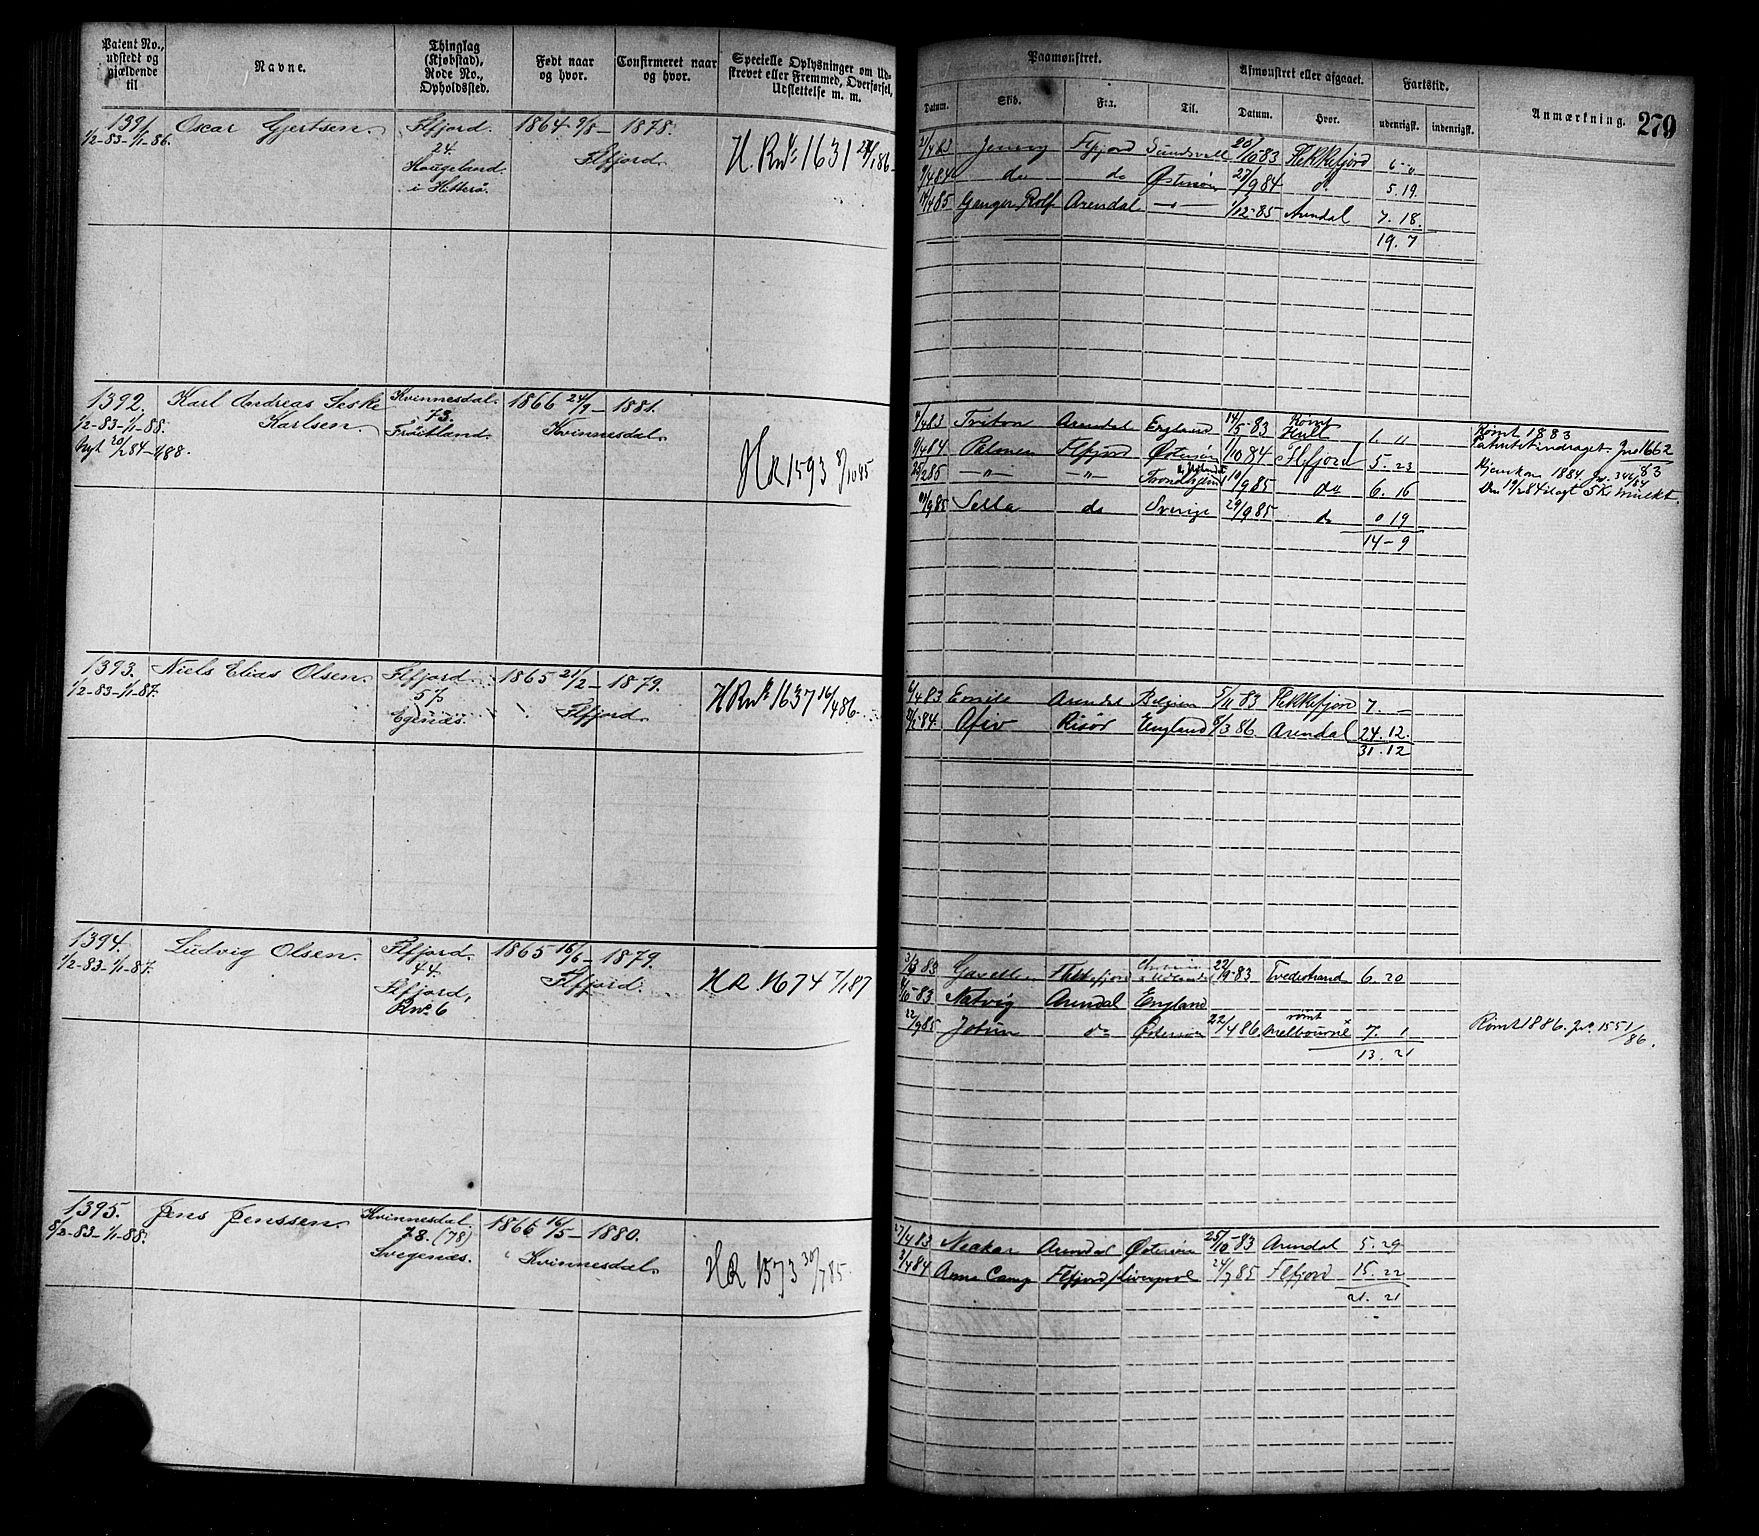 Patent No., udstedt og gjældende til
Navne.
Thinglag (Kjøbstad), Rode No., Opholdssted.
Født naar og hvor.
Confirmeret naar og hvor.
Specielle Oplysninger om Udskrevet eller Fremmed, Overførsel, Udslettelse m. m.
Paamønstret.
Afmønstret eller afgaaet.
Fartstid.
Anmærkning.
279
Datum.
Skib.
Fra.
Til.
Datum.
Hvor.
udenrigsk.
indenrigsk.
1391
1/2-83-1/1-86.
Oscar Gjertsen.
Flfjord.
24.
Haugeland
i Hitterø.
1864 9/8 - 1878.
Flfjord.
H. RNo 1631
Flfjord Sundsvall 83 Flekkefjord 6 0
9/4 84 do do Østersøen 27/9 84 do 5.19.
85 Ganger Rolf Arendal 1/12-85 Arendal 7.18.
19.7
1392.
1/2-83-1/1-88.
Karl Andreas
Karlsen.
Kvinnesdal.
73.
1866 24/9 - 1881.
Kvinnesdal.
HR 1593
Triton Arendal England 14/5-83 Rømt Hull 1. "
9/4 84 Flfjord Østersøen 1/10 84 Flfjord 5.23
-"- -"- 10/9 85 do 6.16
9 85 Sella do Sverige 29/9 85 do 0 19
14-9
Rømt 1883
1662
83
1884
1393.
1/2-83-1/1-87.
Niels Elias Olsen.
Flfjord.
57.
Egenæs.
1865 21/2 - 1879.
Flfjord.
HRNo 1637 16/4 86.
4 83 Arendal Belgien 5/11 83 Flekkefjord 7. -
84 Risør England 8/3 86. Arendal 24.12.
31.12
1394.
1/2-83-1/1-87.
Ludvig Olsen.
Flfjord.
44.
Flfjord,
RNo 6
1865 16/6 - 1879.
Flfjord.
HR 1674 7/1 87
3/3 83 Flekkefjord 22/9-83 Tvedestrand 6.20
10-83 Natvig Arendal England
22/9 85 do Østersøen 22/4 86 rømt Melbourne 7. 1
13. 21
Rømt 1886. 1551/86.
1395.
8/2-83-1/1-88.
Jens Jenssen.
Kvinnesdal.
78. (78)
Svegenæs.
1866 16/5 - 1880.
Kvinnesdal.
HR 1573 30/7 85.
27/4 83 Neckar Arendal Østersøen 25/10-83 Arendal 5.29
3/4 84 Anna Camp Flfjord Liverpool 24/7 85 Flfjord 15.22
21. 21